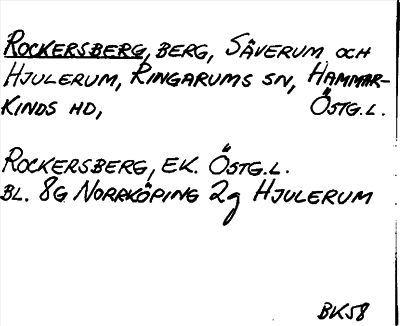 ROCKERSBERG, BERG, SÄVERUM OCH
HJULERUM, RINGARUMS SN, HAMMAR-
KINDS HD, ÖSTG.L.
ROCKERSBERG, EK. ÖSTG.L.
BL. 8G NORRKÖPING 2g HJULERUM
BK58